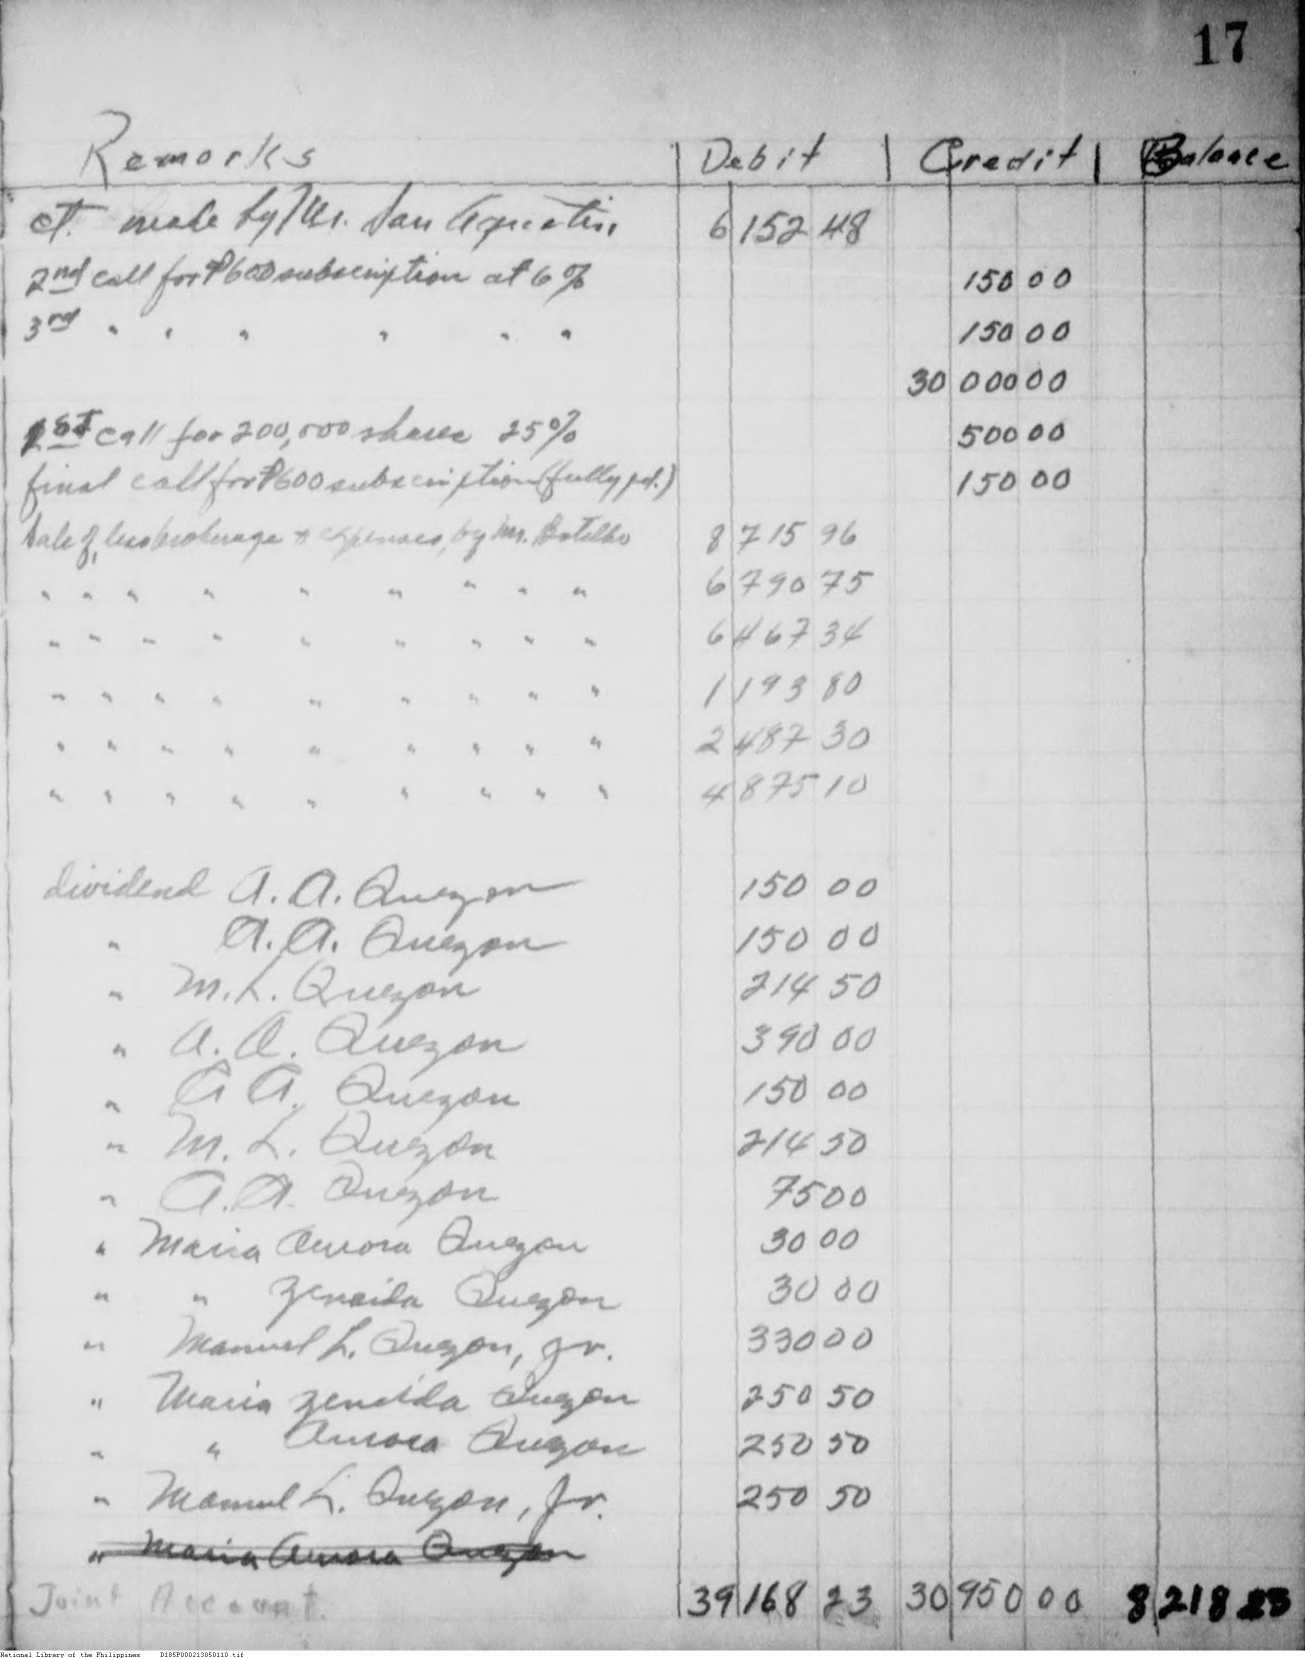 17
Remarks Debit Credit Balance
ct. made by Mr. San Agustin 6 152 48
2nd call for ₱600 subscription at 6% 150 00
3rd " " " " " " 150 00
30 000 00
1st call for 200,000 shares 25% 500 00
final call for ₱600 subscription (fully pd.) 150 00
Sale of, less brokerage & expenses, by Mr. Botelho 8 715 96
" " " " " " " " " 6 790 75
" " " " " " " " " 6 467 34
" " " " " " " " " 1 193 80
" " " " " " " " " 2 487 30
" " " " " " " " " 4 875 10
dividend A. A. Quezon 150 00
" A. A. Quezon 150 00
" M. L. Quezon 214 50
" A. A. Quezon 390 00
" A A. Quezon 150 00
" M. L. Quezon 214 50
" A. A. Quezon 75 00
" Maria Aurora Quezon 30 00
" " Zenaida Quezon 30 00
" Manuel L. Quezon, Jr. 330 00
" Maria Zenaida Quezon 250 50
" " Aurora Quezon 250 50
" Manuel L. Quezon, Jr. 250 50
" Maria Aurora Quezon
Joint Account. 39 168 23 30 950 00 8 218 23
National Library of the Philippines D185P000213050110.tif